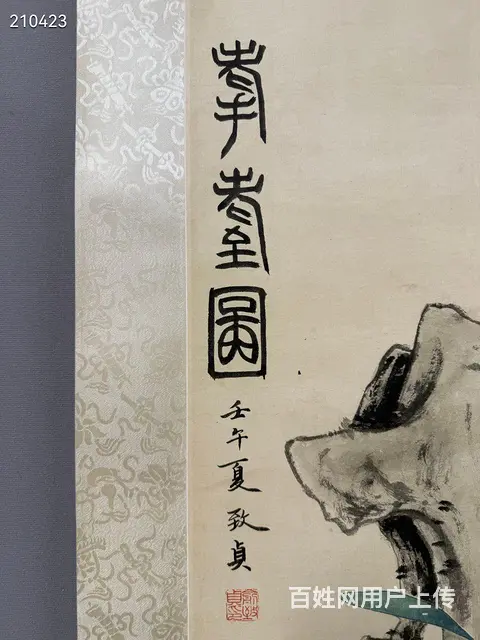 210423
耄耋圖
壬午夏 致貞
百姓网用户上传